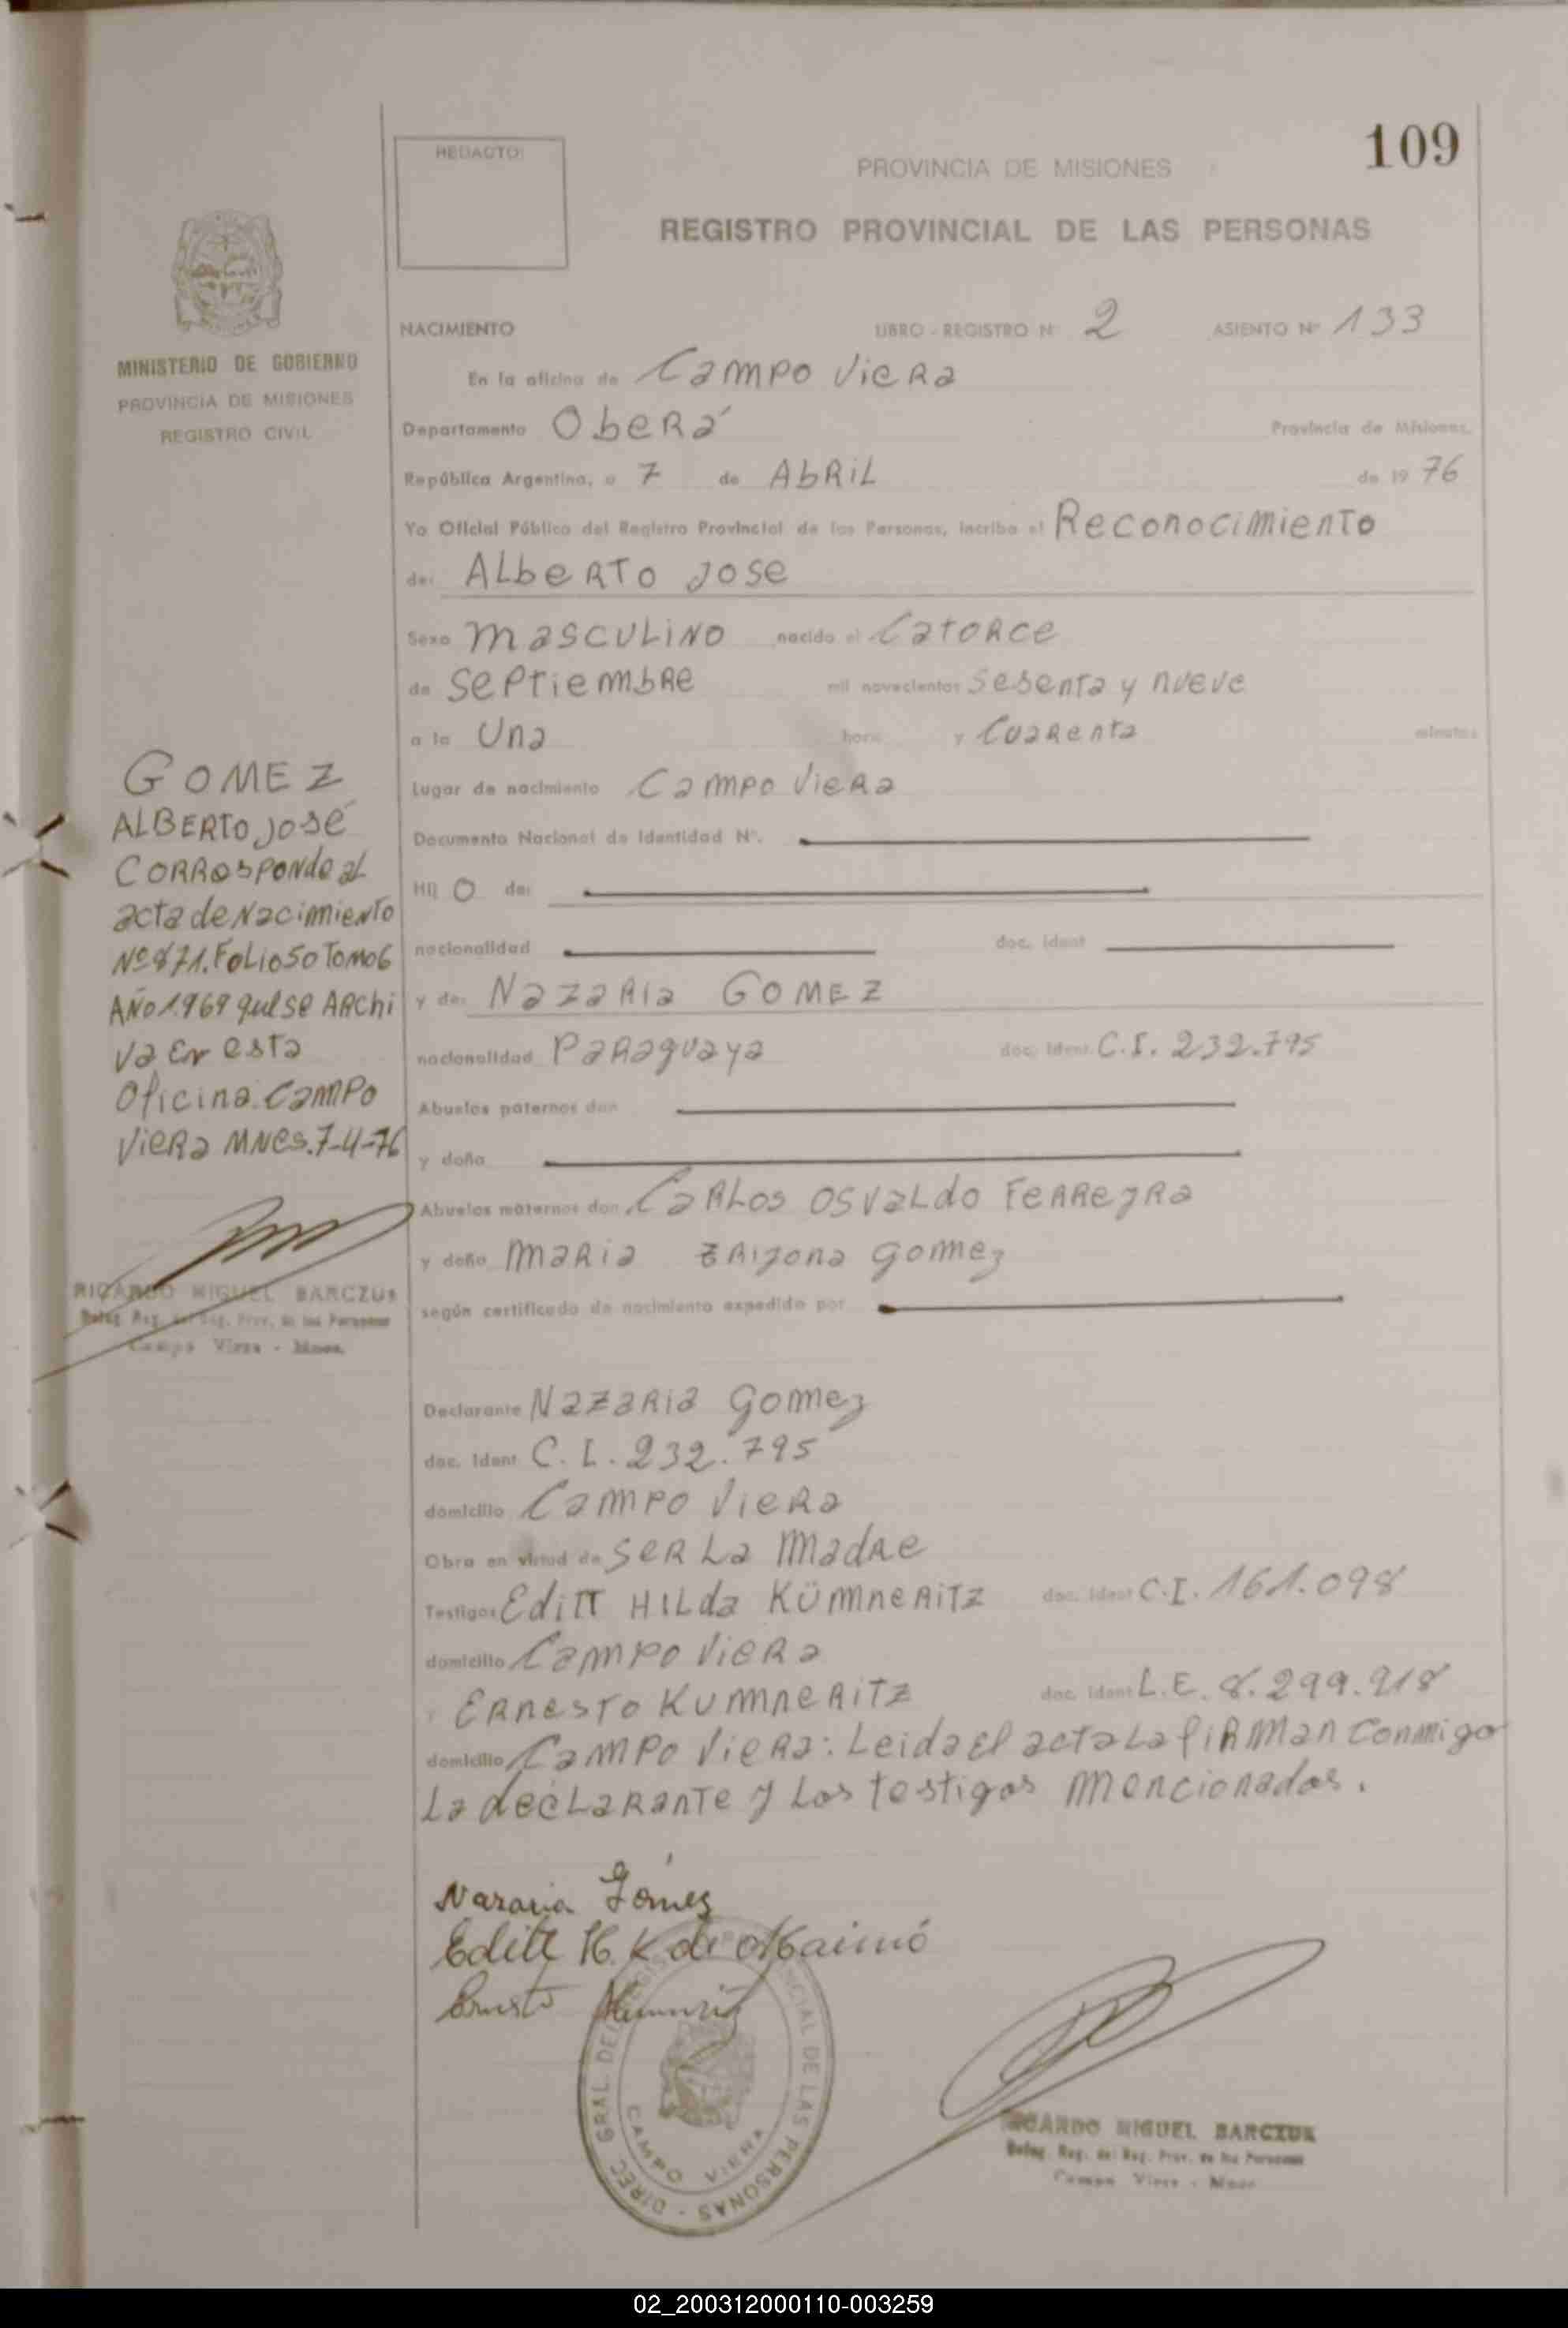 109
REDACTO:
PROVINCIA DE MISIONES
REGISTRO PROVINCIAL DE LAS PERSONAS
MINISTERIO DE GOBIERNO
PROVINCIA DE MISIONES
REGISTRO CIVIL
NACIMIENTO LIBRO - REGISTRO N° 2 ASIENTO N° 133
En la oficina de Campo Viera
Departamento Oberá Provincia de Misiones,
República Argentina, a 7 de Abril de 1976
Yo Oficial Público del Registro Provincial de las Personas, incribo el Reconocimiento
de: Alberto Jose
Sexo Masculino nacido el Catorce
de Septiembre mil novecientos Sesenta y nueve
a la Una hora y Cuarenta minutos
Lugar de nacimiento Campo Viera
Documento Nacional de Identidad N°.
HIJ O de:
nacionalidad doc. ident
y de: Nazaria GOMEZ
nacionalidad Paraguaya doc. ident C.I. 232.795
Abuelos paternos don
y doña
Abuelos maternos don Carlos Osvaldo Ferreyra
y doña Maria Gomez
según certificado de nacimiento expedido por
Declarante Nazaria Gomez
doc. ident C.I. 232.795
domicilio Campo Viera
Obra en virtud de Ser La Madre
Testigos Editt Hilda Kümneritz doc. ident C.I. 161.098
domicilio Campo Viera
y Ernesto Kumneritz doc. ident L.E. 8.299.918
domicilio Campo Viera: Leida el acta La firman conmigo
La declarante y Los testigos mencionados.
GOMEZ
ALBERTO José
CORRosponde al
acta de Nacimiento
Nº 871. Folio 50 Tomo 6
Año 1.969 que se Archi
va En esta
Oficina. Campo
Viera MNES. 7-4-76
RICARDO MIGUEL BARCZUK
Deleg. Reg. del Reg. Prov. de las Personas
Campo Viera - Mnes.
Nazaria Gomes
Editt H. K. de
Ernesto
DIREC. GRAL. DEL REGISTRO PROVINCIAL DE LAS PERSONAS -
CAMPO VIERA
RICARDO MIGUEL BARCZUK
Deleg. Reg. del Reg. Prov. de las Personas
Campo Viera - Mnes.
02_200312000110-003259